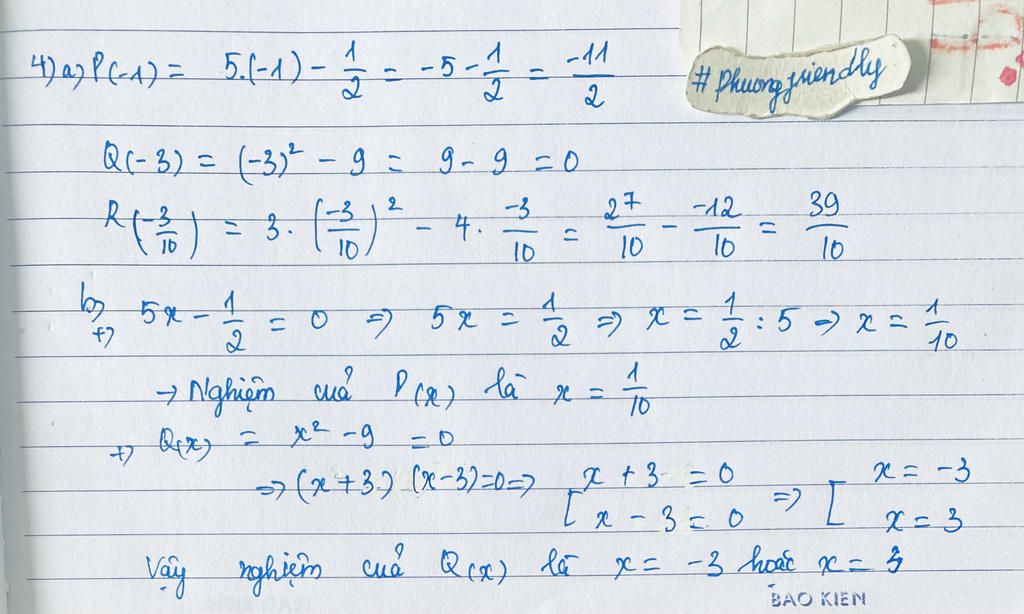 4) a) P(-1) = 5.(-1) - 1/2 = -5 - 1/2 = -11/2
#phuongfriendly
Q(-3) = (-3)² - 9 = 9 - 9 = 0
R(-3/10) = 3 . (-3/10)² - 4 . -3/10 = 27/10 - -12/10 = 39/10
b)
+) 5x - 1/2 = 0 => 5x = 1/2 => x = 1/2 : 5 => x = 1/10
→ Nghiệm cuả P(x) là x = 1/10
+) Q(x) = x² - 9 = 0
=> (x+3) (x-3)=0 => [ x + 3 = 0 => [ x = -3
x - 3 = 0 x = 3
Vậy nghiệm cuả Q(x) là x = -3 hoặc x = 3
BAO KIEN